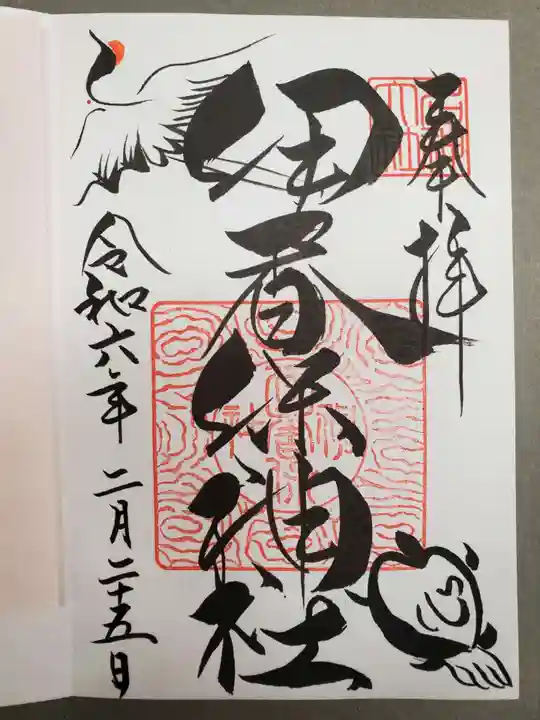 奉拝
名神大社
伊香保神社
令和六年二月二十五日